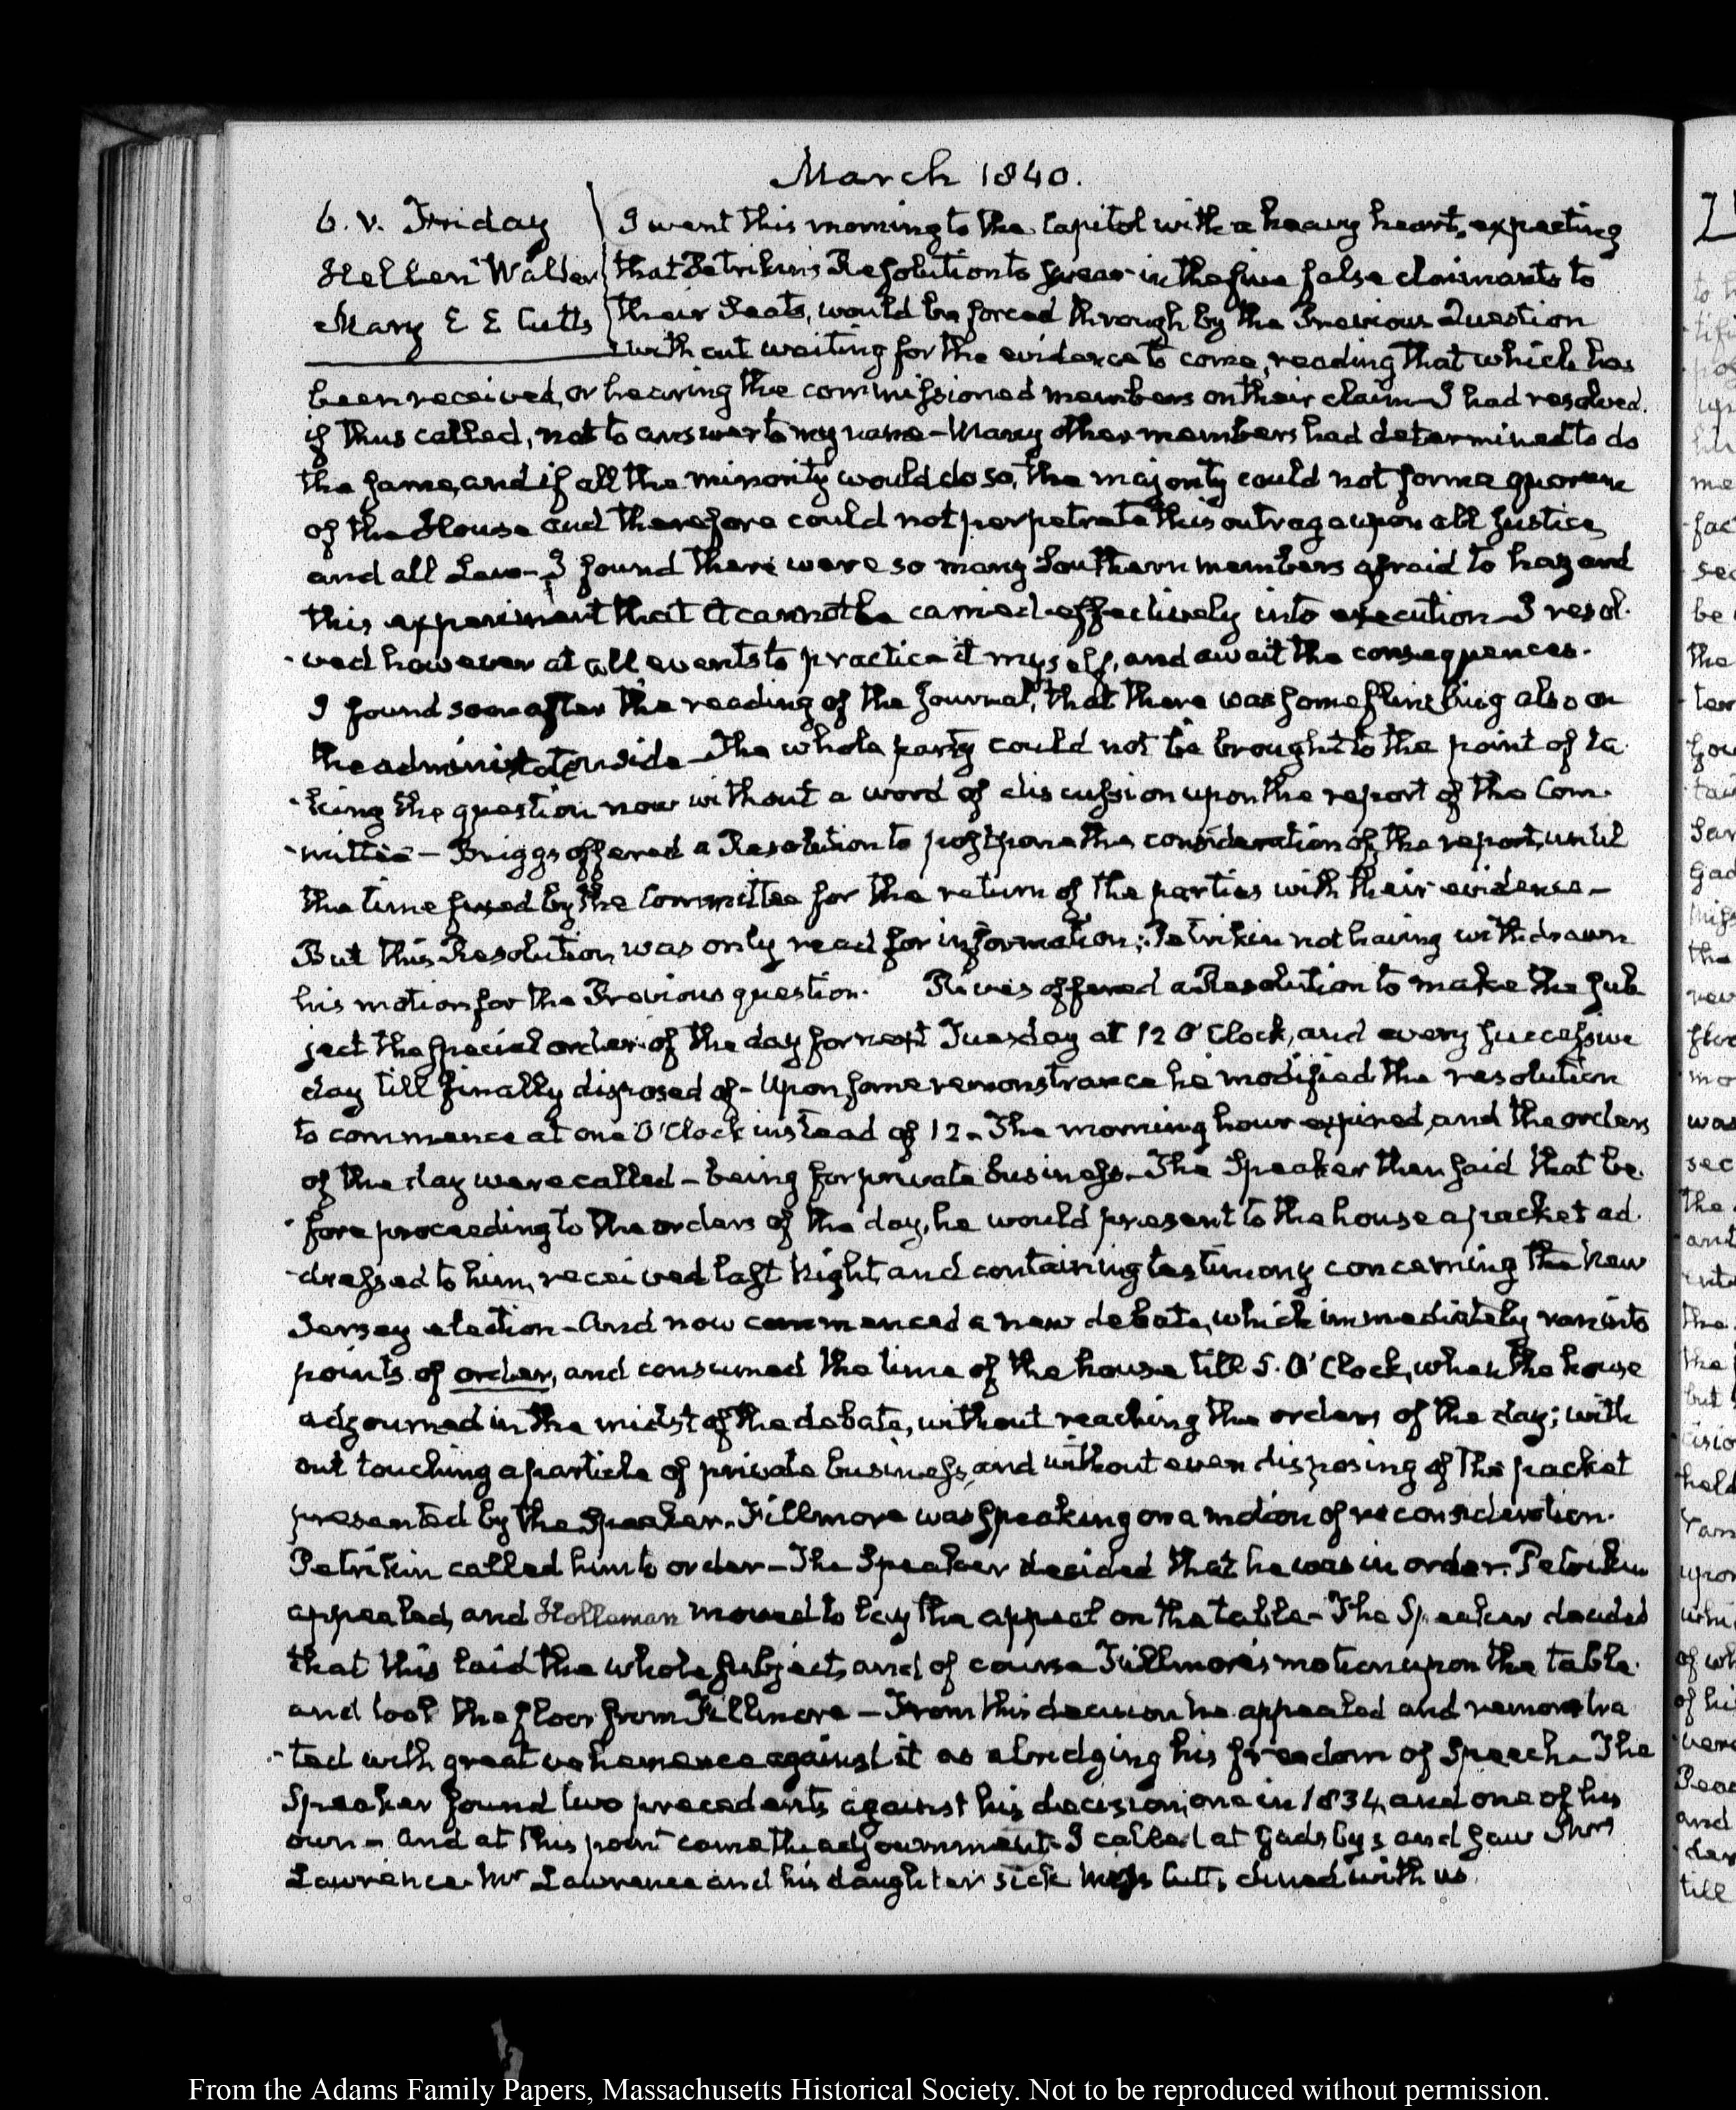 March 1840.
6. V. Friday
Hellen Walter
Mary E E Cutts
I went this morning to the Capitol with a heavy heart, expecting
that Petrikin's Resolution to swear in the five false claimants to
their Seats, would be forced through by the Previous Question
without waiting for the evidence to come, reading that which has
been received, or hearing the commissioned members on their claim — I had resolved.
if thus called, not to answer to my name — Many other members had determined to do
the same, and if all the minority would do so, the majority could not form a quorum
of the House and therefore could not perpetrate this outrage upon all Justice,
and all Law — I found there were so many Southern members afraid to hazard
this experiment that it cannot be carried effectively into execution — I resol-
-ved however at all events to practice it myself, and await the consequences.
I found soon after the reading of the Journal, that there was some flinching also on
the administration side — The whole party could not be brought to the point of ta-
-king the question now without a word of discussion upon the report of the Com-
-mittee — Briggs offered a Resolution to postpone the consideration of the report, until
the time fixed by the Committee for the return of the parties with their evidence —
But this Resolution was only read for information; Petrikin not having withdrawn
his motion for the Previous question. Rives offered a Resolution to make the sub
ject the special order of the day for next Tuesday at 12 O'Clock, and every successive
day till finally disposed of — Upon some remonstrance he modified the resolution
to commence at one O'Clock instead of 12 — The morning hour expired, and the orders
of the day were called — being for private business — The Speaker then said that be-
-fore proceeding to the orders of the day, he would present to the house a packet ad-
-dressed to him, received last Night, and containing testimony concerning the New
Jersey election — And now commenced a new debate, which immediately ran into
points of order, and consumed the time of the house till 5. O'Clock, when the house
adjourned in the midst of the debate, without reaching the orders of the day; with
out touching a particle of private business, and without even disposing of the packet
presented by the Speaker. Fillmore was speaking on a motion of reconsideration.
Petrikin called him to order — The Speaker decided that he was in order. Petrikin
appealed, and Holleman moved to lay the appeal on the table — The Speaker decided
that this laid the whole subject, and of course Fillmore's motion upon the table.
and took the floor from Fillmore — From this decision he appealed and remonstra
-ted with great vehemence against it as abridging his freedom of Speech — The
Speaker found two precedents against his decision, one in 1834, and one of his
own — And at this point came the adjournment — I called at Gadsby's and saw Mrs
Lawrence — Mr Lawrence and his daughter sick Miss Cutts dined with us
From the Adams Family Papers, Massachusetts Historical Society. Not to be reproduced without permission.